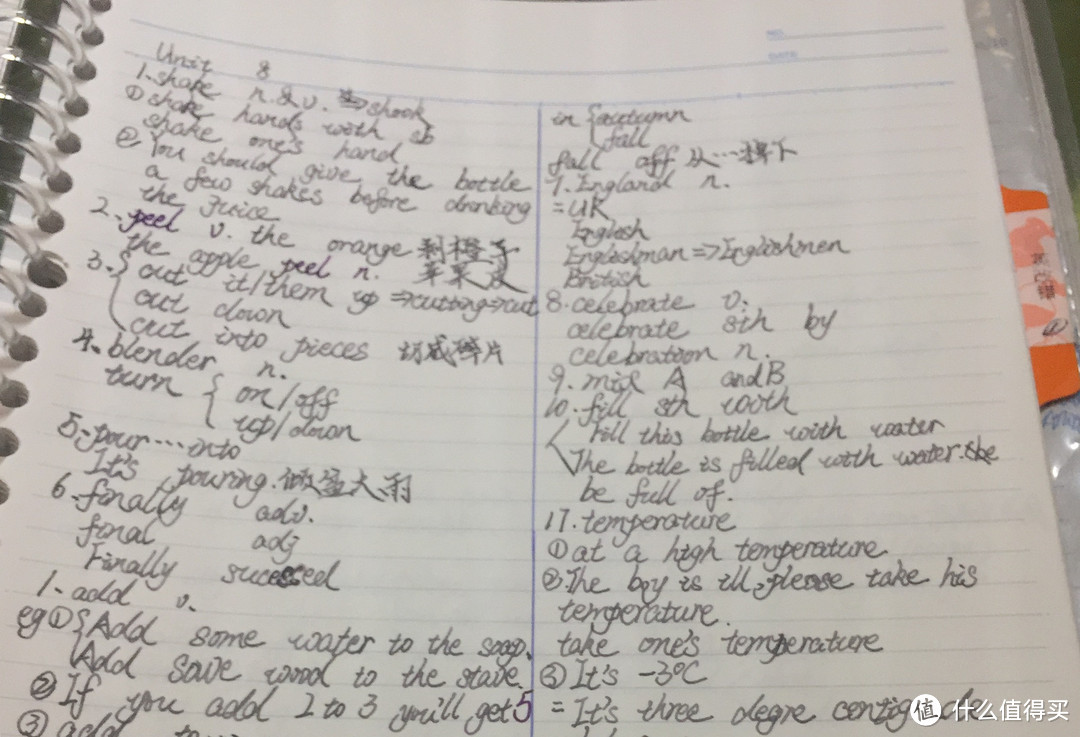 Unit 8
1. shake n.&v. ⇒shook
① shake hands with sb
shake one's hand
② You should give the bottle
a few shakes before drinking
the juice
2. peel v. the orange 剥橙子
the apple peel n. 苹果皮
3. cut it/them up ⇒cutting⇒cut
cut down
cut into pieces 切成碎片
4. blender n.
turn on/off
up/down
5. pour…into
It's pouring. 倾盆大雨
6. finally adv.
final adj
Finally succeed
1. add v.
eg ① Add some water to the soap.
Add some wood to the
② If you add 2 to 3 you'll get 5
③ add
NO.
DATE
in autumn
fall
fall off 从…掉下
7. England n.
=UK
English
Englishman =>Englishmen
British
8. celebrate v.
celebrate sth by
celebration n.
9. mix A and B
10. fill sth with
Fill this bottle with water
The bottle is filled with water.
be full of.
17. temperature
① at a high temperature
②.The boy is ill, please take his
temperature.
take one's temperature
③ It's -3°C
= It's three degre
值 什么值得买